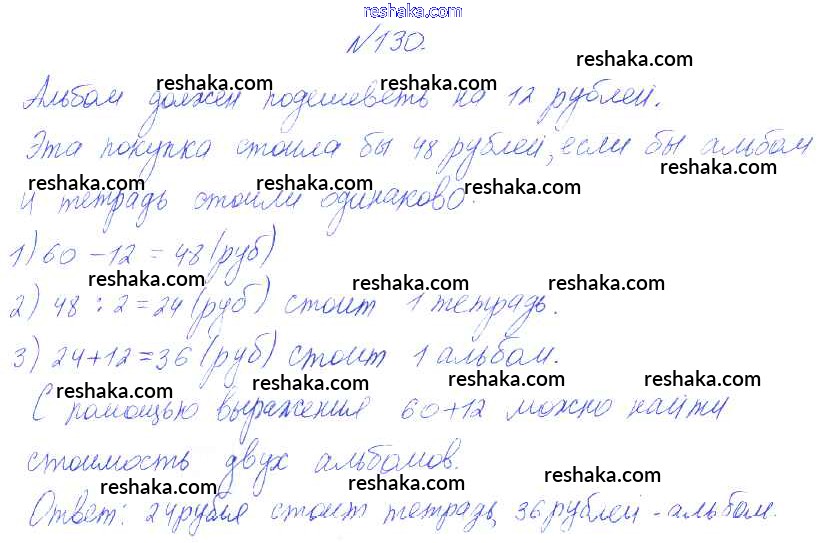 reshaka.com
№130.
reshaka.com reshaka.com reshaka.com
Альбом должен подешеветь на 12 рублей.
Эта покупка стоила бы 48 рублей, если бы альбом
reshaka.com reshaka.com reshaka.com
и тетрадь стоили одинаково.
1) 60 - 12 = 48 (руб)
reshaka.com reshaka.com reshaka.com
2) 48 : 2 = 24 (руб) стоит 1 тетрадь.
3) 24 + 12 = 36 (руб) стоит 1 альбом.
reshaka.com reshaka.com reshaka.com reshaka.com
С помощью выражения 60 + 12 можно найти
стоимость двух альбомов.
reshaka.com reshaka.com reshaka.com
Ответ: 24 рубля стоит тетрадь, 36 рублей - альбом.